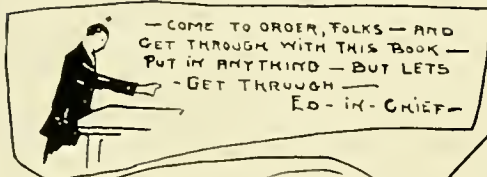 — COME TO ORDER, FOLKS — AND
GET THROUGH WITH THIS BOOK —
PUT IN ANYTHING — BUT LETS
- GET THROUGH —
ED - IN - CHIEF -